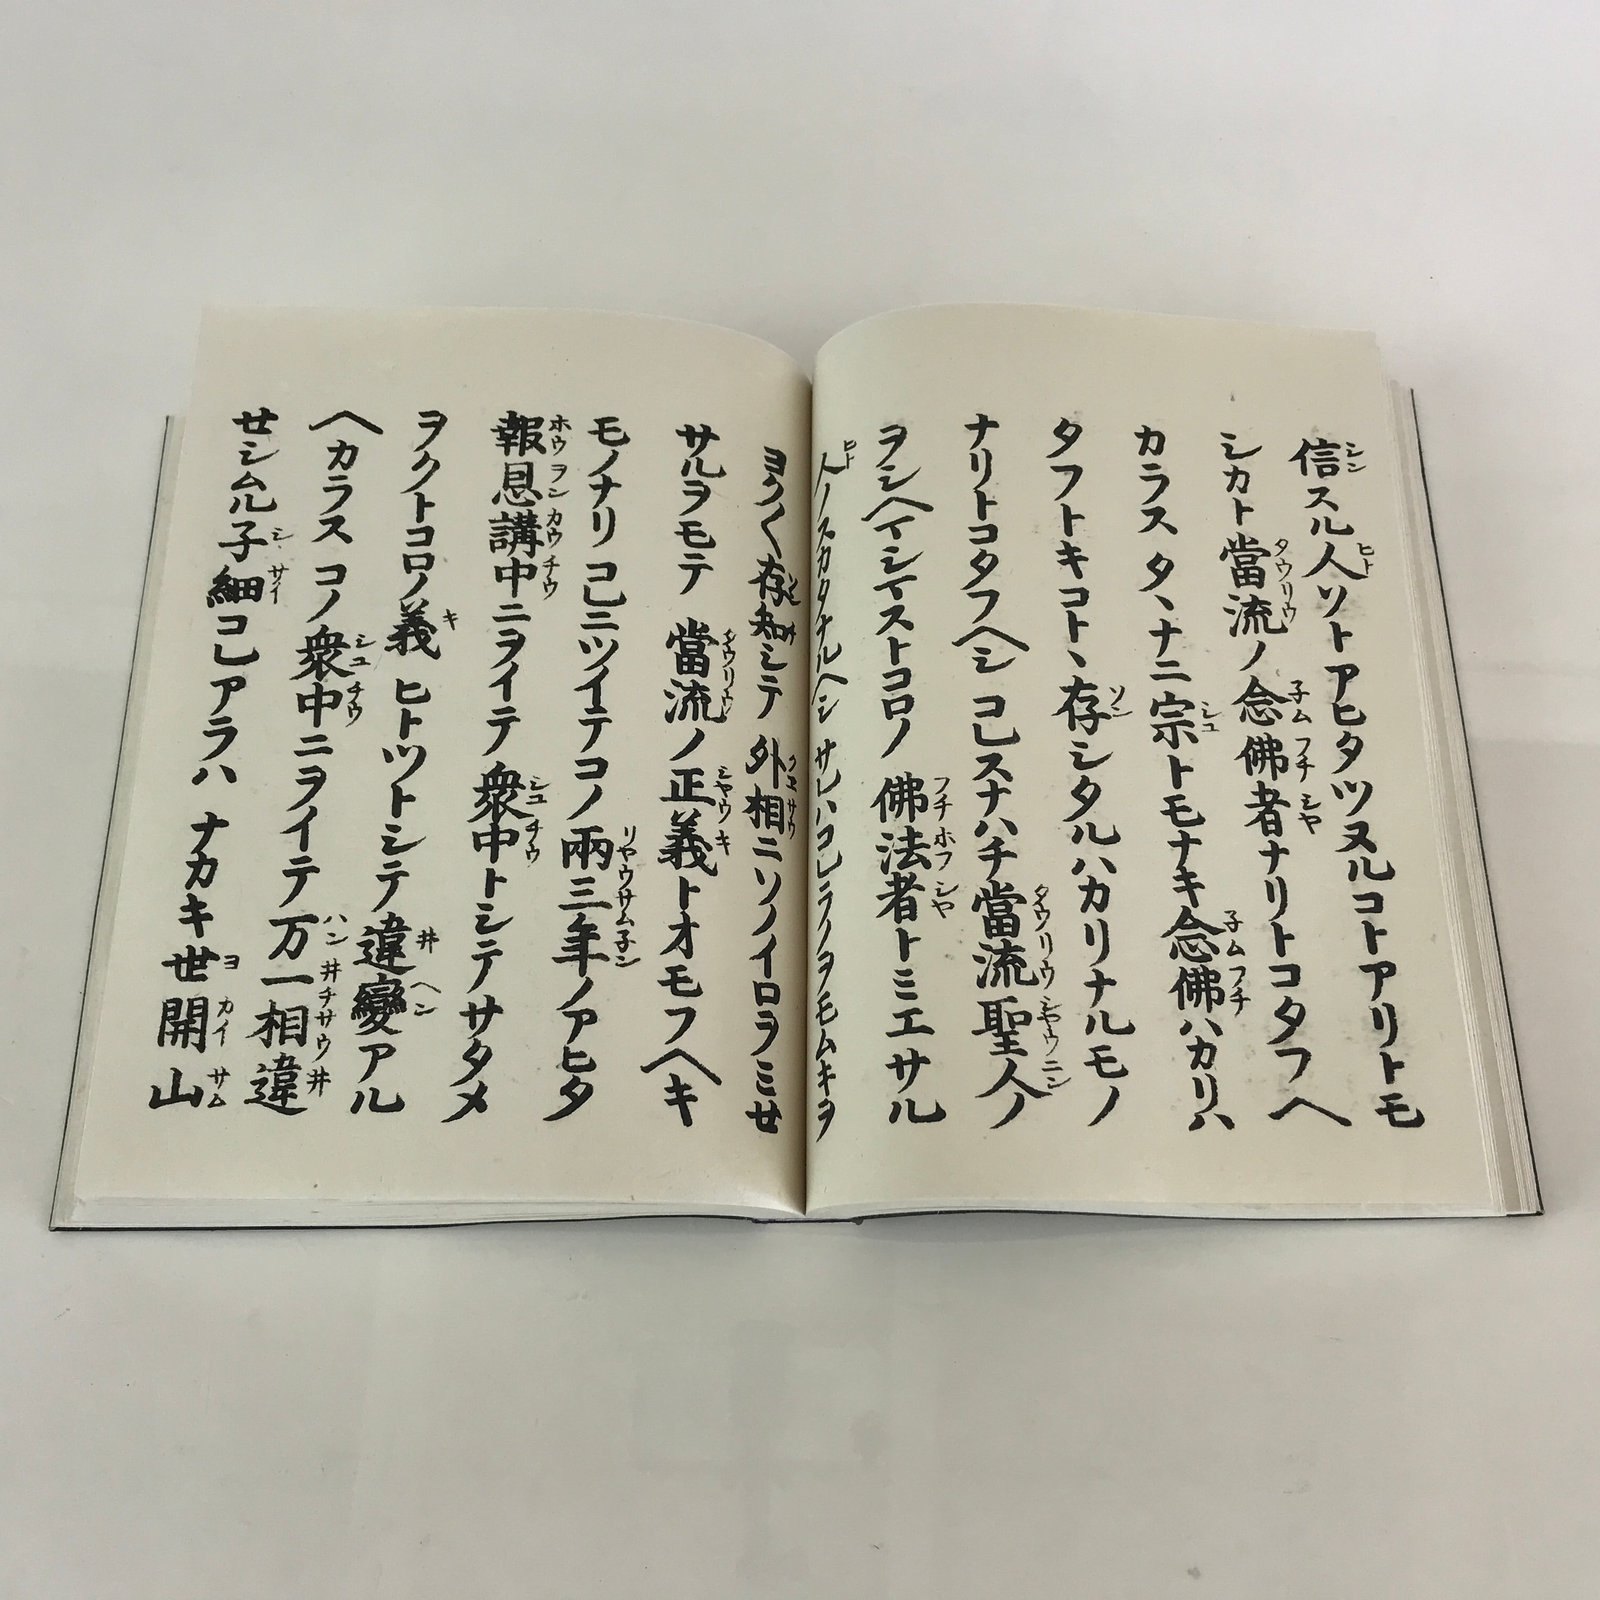 信スル人ソトアヒタツヌルコトアリトモ
シカト當流ノ念佛者ナリトコタフヘ
カラスタヽナニ宗トモナキ念佛ハカリハ
タフトキコトヽ存シタルハカリナルモノ
ナリトコタフヘシコレスナハチ當流聖人ノ
ヲシヘマシマストコロノ佛法者トミエサル
人ノスカタナルヘシサレハコレラノヲモムキヲ
ヨク〱存知シテ外相ニソノイロヲミセ
サルヲモテ當流ノ正義トオモフヘキ
モノナリコレニツイテコノ兩三年ノアヒタ
報恩講中ニヲイテ衆中トシテサタメ
ヲクトコロノ義ヒトツトシテ違變アル
ヘカラスコノ衆中ニヲイテ万一相違
セシムル子細コレアラハナカキ世開山